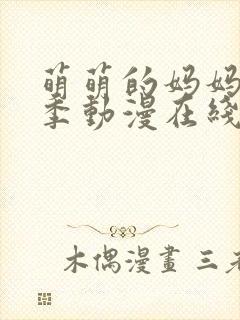 萌萌的妈妈
季動漫在綫
木偶漫畫 三